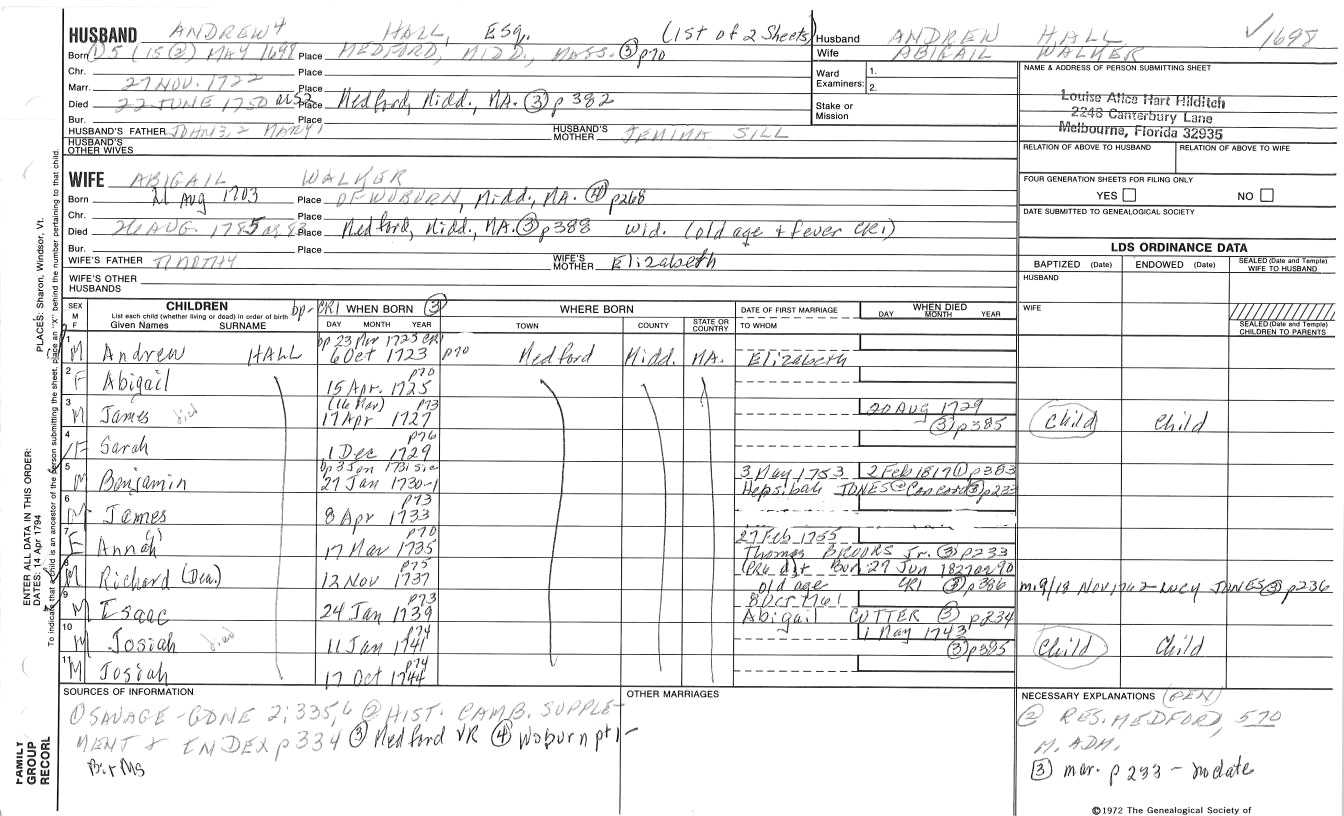 HUSBAND ANDREW4 HALL, ESq. (1st of 2 Sheets)
Born ① 5 (15 ②) MAY 1698 Place MEDFORD, MIDD., MASS. ③ p70
Chr. Place
Marr. 27 NOV. 1722 Place
Died 22 JUNE 1750 ae 52 Place Medford, Midd., MA. ③ p382
Bur. Place
HUSBAND'S FATHER JOHN3, 2 HUSBAND'S MOTHER JEMIMA SILL
HUSBAND'S OTHER WIVES
Husband ANDREW HALL ✓1698
Wife ABIGAIL WALKER
Ward Examiners: 1.
2.
Stake or Mission
NAME & ADDRESS OF PERSON SUBMITTING SHEET
Louise Alice Hart Hilditch
2248 Canterbury Lane
Melbourne, Florida 32935
RELATION OF ABOVE TO HUSBAND RELATION OF ABOVE TO WIFE
FOUR GENERATION SHEETS FOR FILING ONLY
YES NO
DATE SUBMITTED TO GENEALOGICAL SOCIETY
WIFE ABIGAIL WALKER
Born 21 Aug 1703 Place OF WOBURN, Midd., MA. ④ p268
Chr. Place
Died 26 AUG. 1785 ae 83 Place Medford, Midd., MA. ③ p388 wid. (old age + fever CR1)
Bur. Place
WIFE'S FATHER TIMOTHY WIFE'S MOTHER Elizabeth
WIFE'S OTHER HUSBANDS
LDS ORDINANCE DATA
BAPTIZED (Date) ENDOWED (Date) SEALED (Date and Temple) WIFE TO HUSBAND
HUSBAND
WIFE
SEALED (Date and Temple) CHILDREN TO PARENTS
SEX M F
CHILDREN
List each child (whether living or dead) in order of birth
Given Names SURNAME
bp-CR1 WHEN BORN ③
DAY MONTH YEAR
WHERE BORN
TOWN COUNTY STATE OR COUNTRY
DATE OF FIRST MARRIAGE
TO WHOM
WHEN DIED
DAY MONTH YEAR
1 M Andrew HALL bp 23 Mar 1725 CR1
6 Oct 1723 p70 Medford Midd. MA. Elizabeth
2 F Abigail 15 Apr. 1725 p70
3 M James died (16 Mar) 17 Apr 1727 p73 20 Aug 1729 ③ p385 Child Child
4 F Sarah 1 Dec 1729 p76
5 M Benjamin bp 3 Jan 1731 sic
27 Jan 1730-1 3 May 1753 2 Feb 1817 ① p383
Hepsibah JONES @ Concord ③ p233
6 M James 8 Apr 1733 p73
7 F Annah 17 Mar 1735 p70 27 Feb 1755
Thomas BROOKS Jr. ③ p233
8 M Richard (Dea.) 12 Nov 1737 p75 Bur 27 Jun 1827 ae 90
old age CR1 ③ p386 m. 9/18 Nov 1762 - Lucy JONES ③ p236
9 M Isaac 24 Jan 1739 p73 8 Oct 1761
Abigail CUTTER ③ p234
10 M Josiah died 11 Jan 1741 p74 1 May 1743 ③ p385 Child Child
11 M Josiah 17 Oct 1744 p74
SOURCES OF INFORMATION
① SAVAGE - GDNE 2:335,6 ② HIST. CAMB. SUPPLE-
MENT & INDEX p 334 ③ Medford VR ④ Woburn pt 1 -
OTHER MARRIAGES
NECESSARY EXPLANATIONS (PEN)
② RES. MEDFORD, 570
M. ADM.
③ mar. p 233 - no date
©1972 The Genealogical Society of
PLACES: Sharon, Windsor, Vt.
ENTER ALL DATA IN THIS ORDER:
DATES: 14 Apr 1794
To indicate that a child is an ancestor of the person submitting the sheet, place an "X" behind the number pertaining to that child.
FAMILY GROUP RECORD